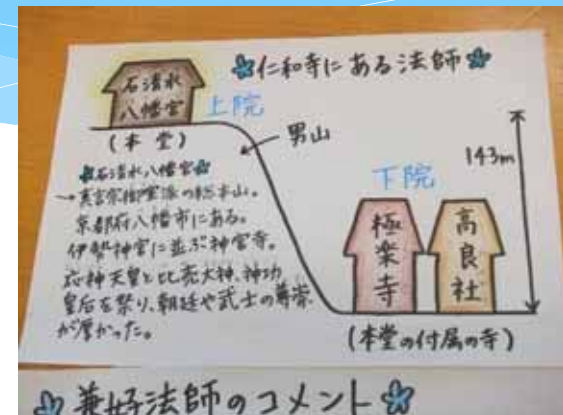 ✿仁和寺にある法師✿
石清水
八幡宮
上院
(本堂)
男山
143m
✿石清水八幡宮✿
→真言宗御室派の総本山。
京都府八幡市にある。
伊勢神宮に並ぶ神宮寺。
応神天皇と比売大神、神功
皇后を祭り、朝廷や武士の尊崇
が厚かった。
下院
極楽寺
高良社
(本堂の付属の寺)
✿兼好法師のコメント✿